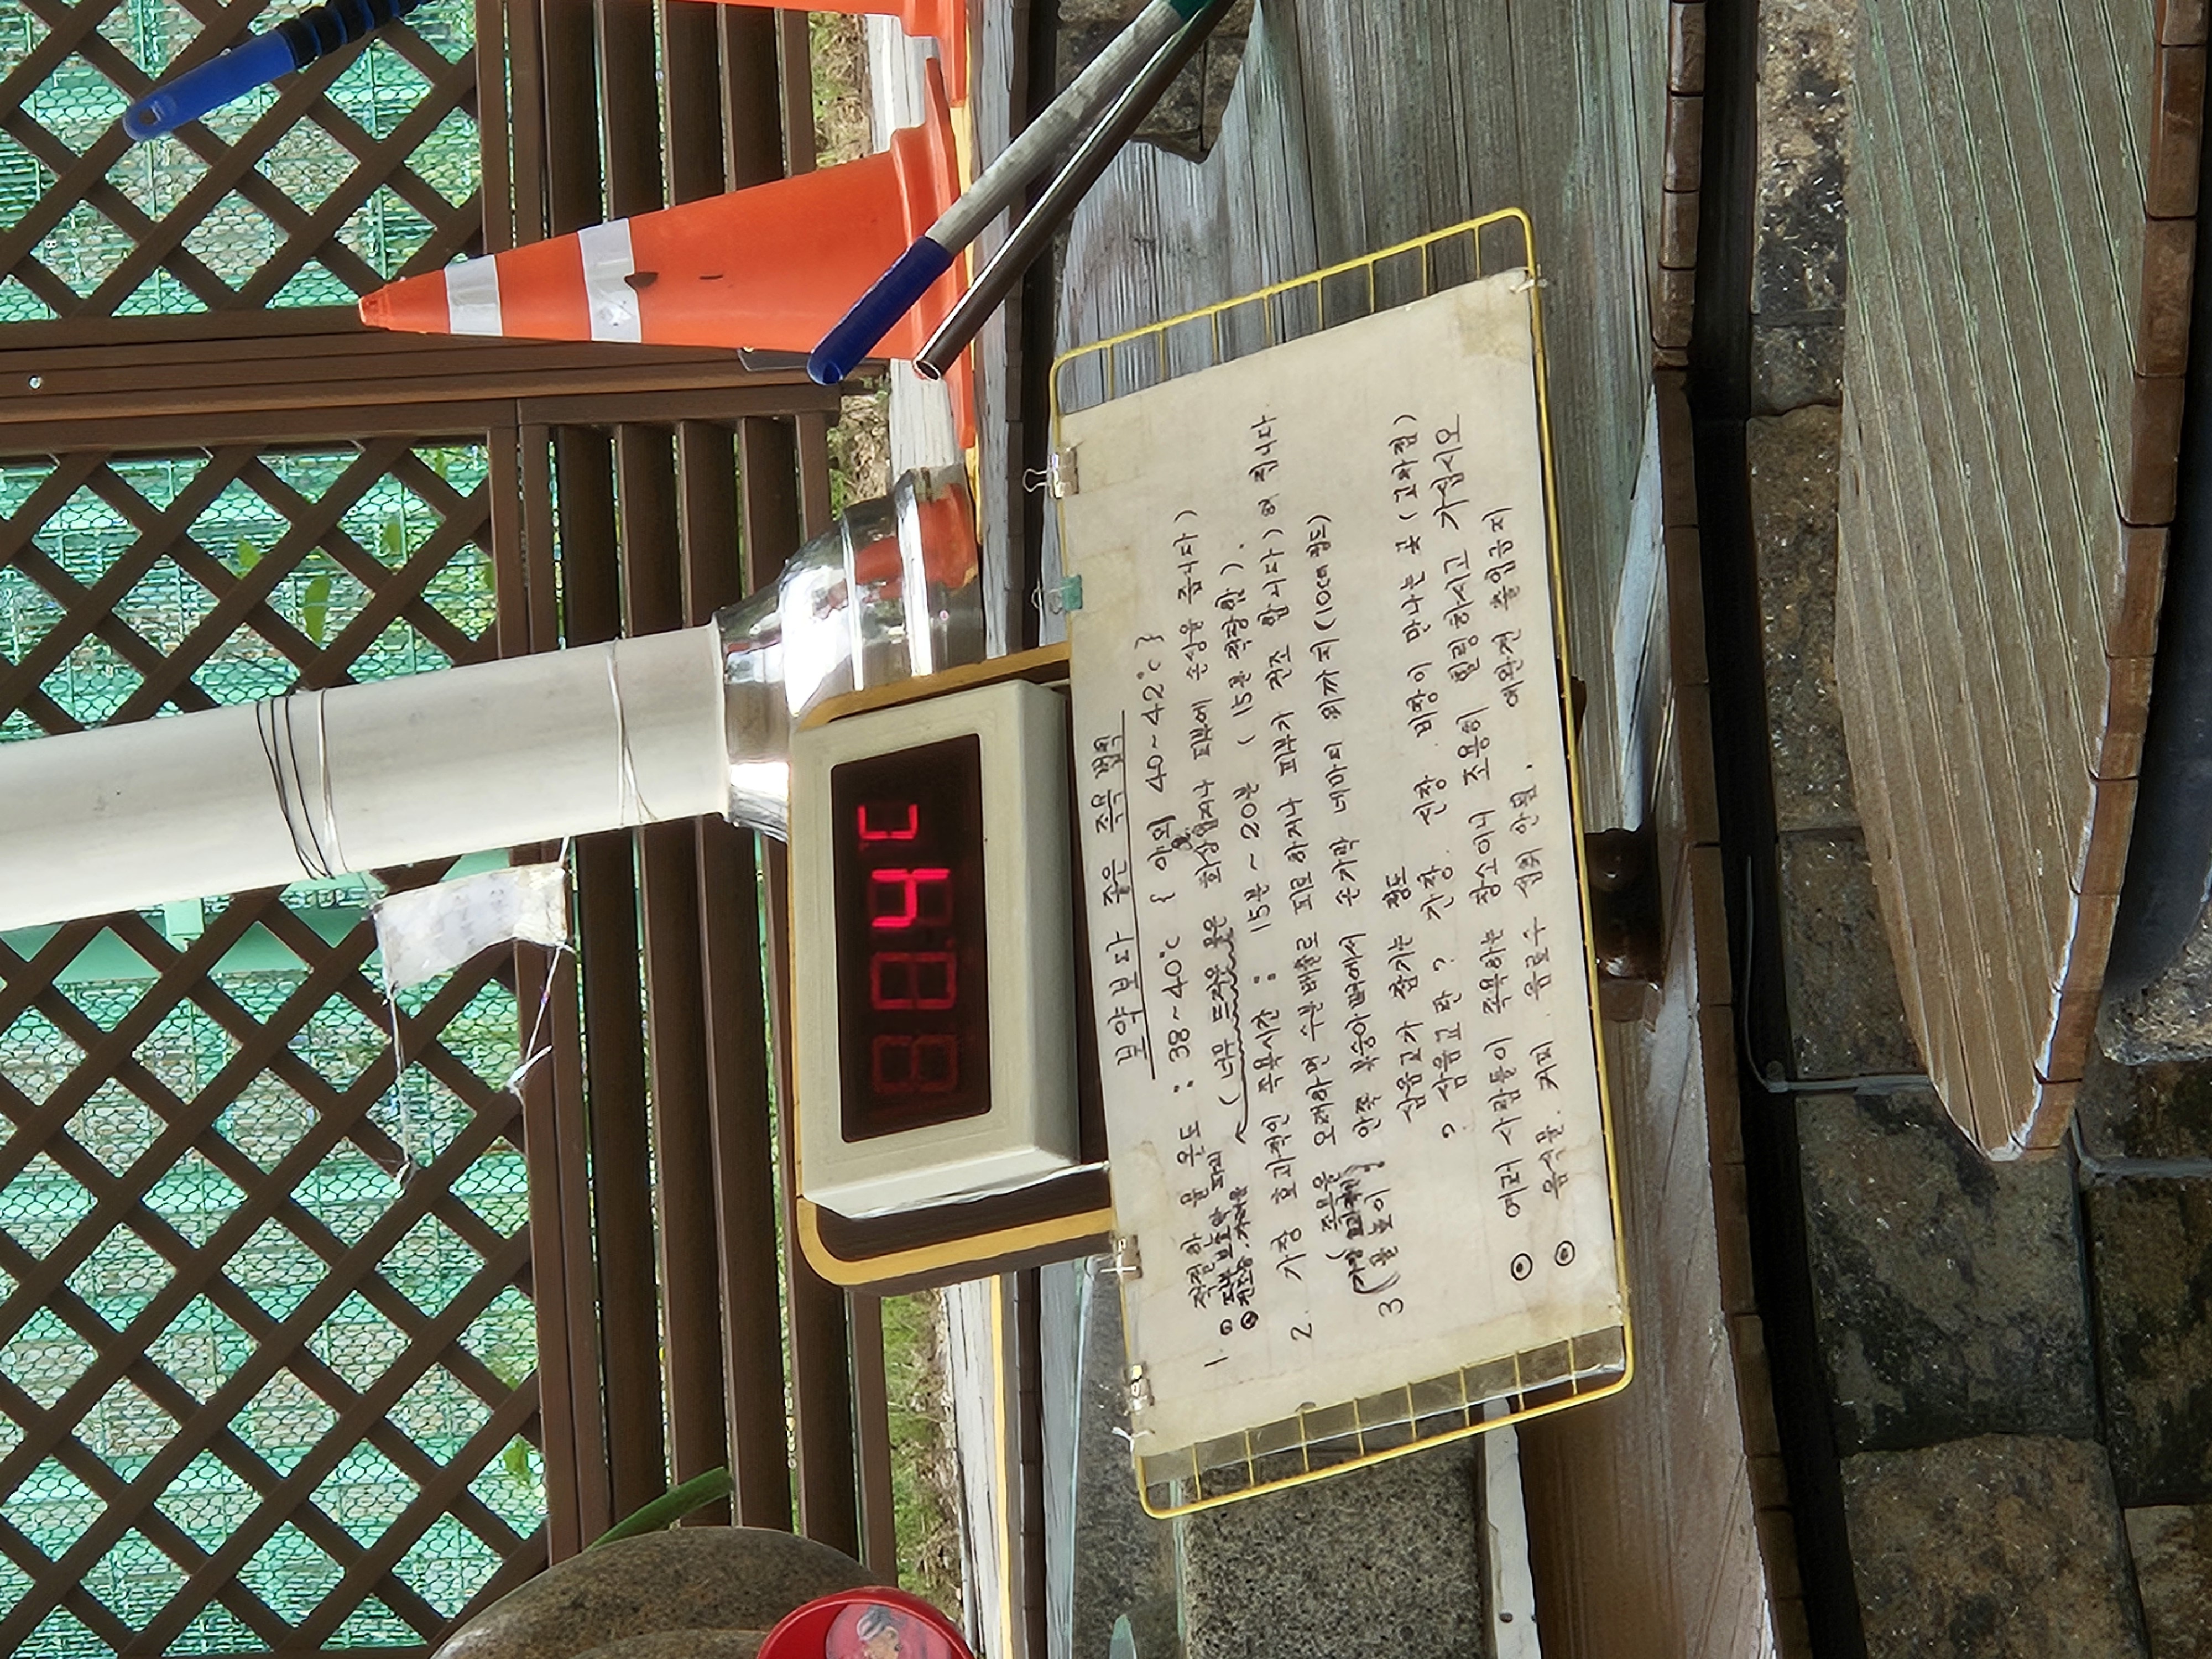 4℃
보약보다 좋은 족욕 법칙
1. 적절한 물 온도 : 38~40℃ { 야외 40~42℃ }
(너무 뜨거운 물은 화상입거나 피부에 손상을 줍니다)
2. 가장 효과적인 족욕시간 : 15분~20분 (15분 적당함).
족욕을 오래하면 수분배출로 피로하거나 피부가 건조 합니다) 해 집니다
3 (물높이 : 안쪽 복숭아뼈에서 손가락 네마디 위까지(10cm정도)
삼음교가 잠기는 정도
? 삼음교란? 간장. 신장. 비장이 만나는 곳(교차점)
◎ 여러 사람들이 족욕하는 장소이니 조용히 힐링하시고 가십시오
◎ 음식물. 커피. 음료수 섭취 안됨. 애완견 출입금지